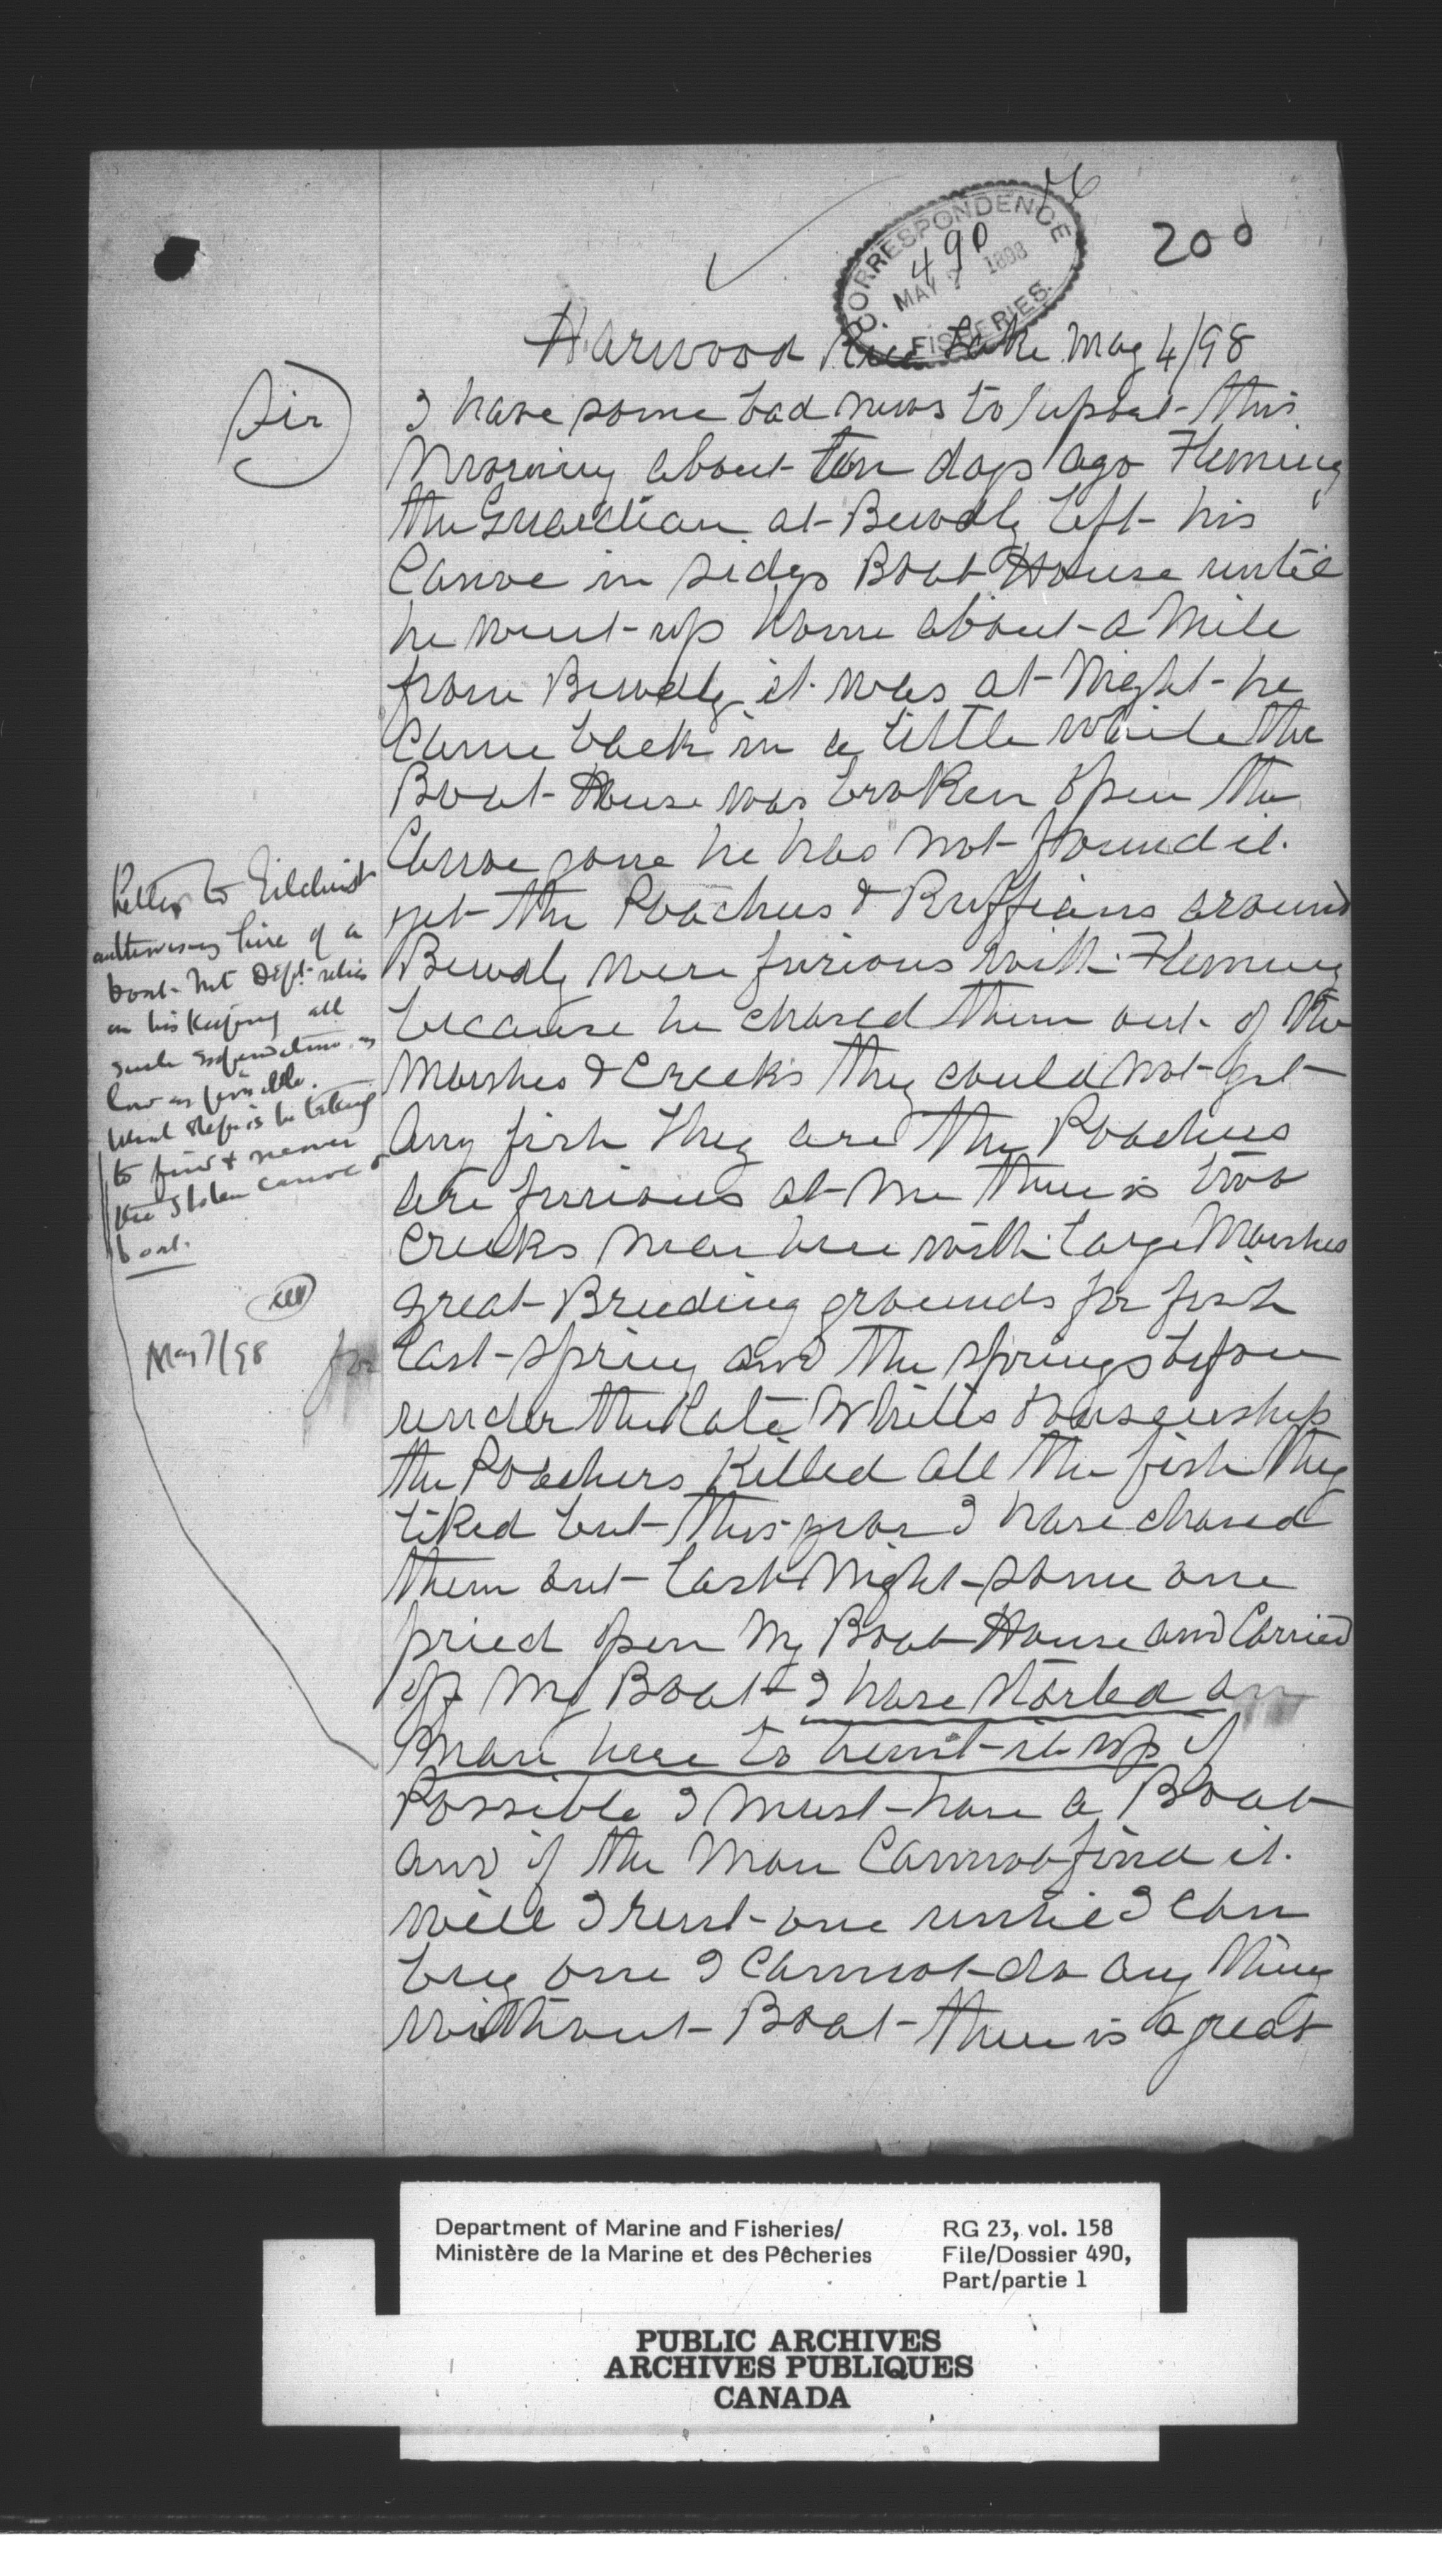 56
CORRESPONDENCE
490
MAY 1898
FISHERIES.
200
Harwood Rice Lake May 4/98
Sir
I have some bad news to report this
Morning about ten days ago Fleming
the Guardian at Bewdly left his
Canoe in sidys Boat House until
he went up home about a Mile
from Bewdly it was at Night he
Came back in a little while the
Boat House was broken open the
Canoe gone he has not found it
yet the Poachers & Ruffians around
Bewdly were furious with Fleming
because he chased them out of the
Marshes & Creeks they could not get
Any fish they are the Poachers
are furious at me there is two
Creeks near here with large Marshes
great Breeding grounds for fish
for last spring and the springs before
under the late Whites
the Poachers Killed all the fish they
liked but this year I have chased
them out last Night some one
pried open My Boat House and Carried
off My Boat I have started a
Man here to hunt it up if
Possible I must have a Boat
and if the Man Cannot find it
will I rent one until I can
buy one I Cannot do any thing
without Boat there is a great
Letter to Gilchrist
authorising hire of a
boat but Dept. relies
on his keeping all
such expenditure as
low as possible.
What steps is he taking
to find & recover
the stolen canoe or
boat.
May 7/98
Department of Marine and Fisheries/
Ministère de la Marine et des Pêcheries
RG 23, vol. 158
File/Dossier 490,
Part/partie 1
PUBLIC ARCHIVES
ARCHIVES PUBLIQUES
CANADA